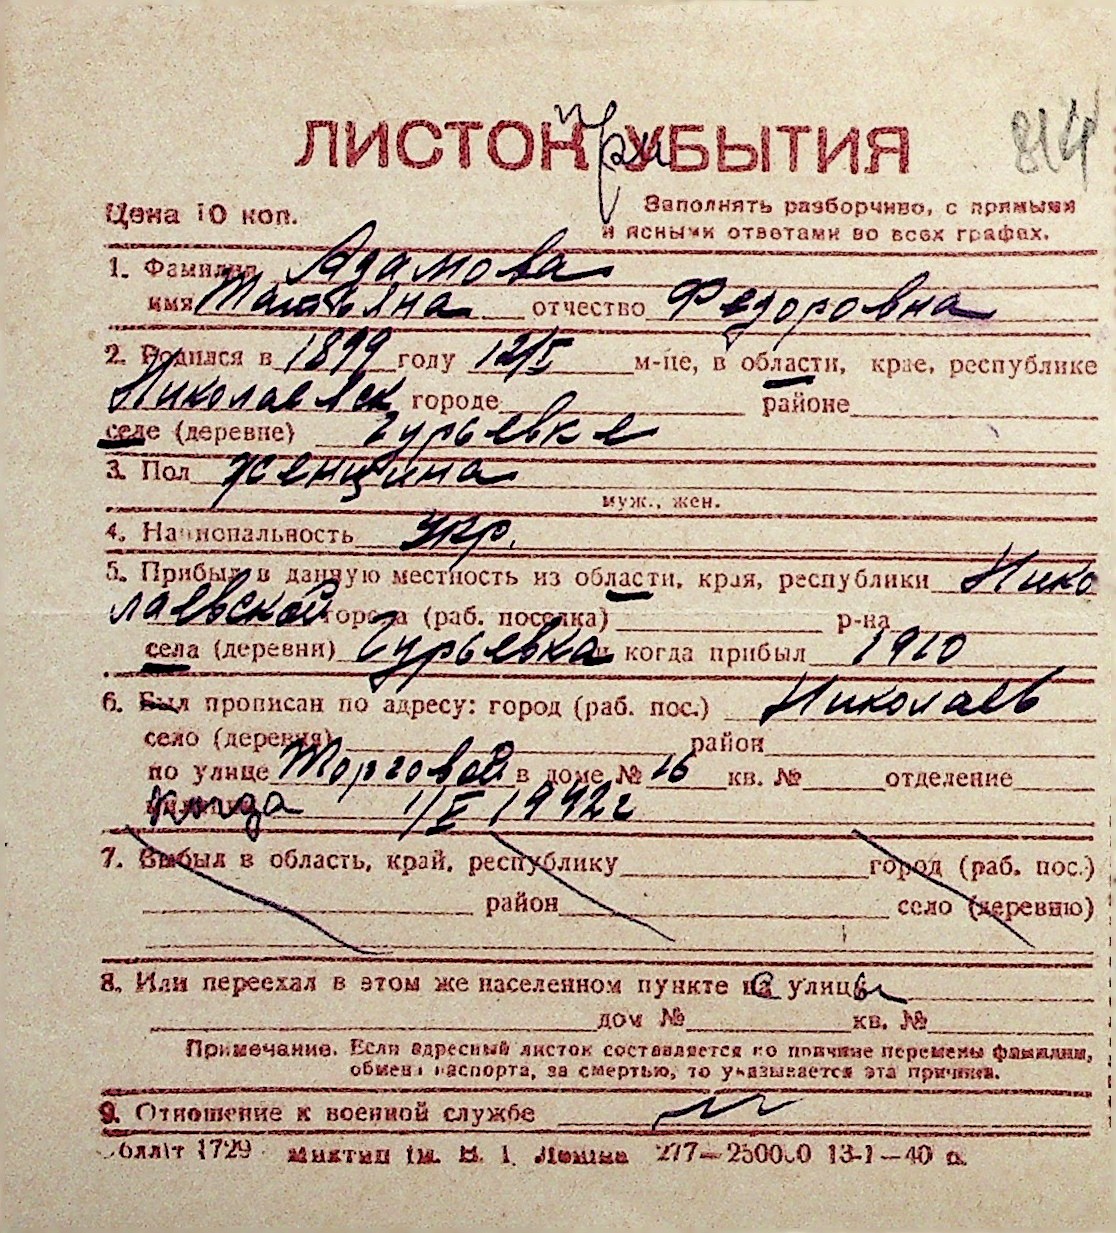 ЛИСТОК ПРИБЫТИЯ
814
Цена 10 коп.
Заполнять разборчиво, с прямыми
и ясными ответами во всех графах.
1. Фамилия Адамова
имя Татьяна отчество Федоровна
2. Родился в 1899 году 12/I м-це, в области, крае, республике
Николаевск городе районе
селе (деревне) Гурьевке
3. Пол женщина
муж., жен.
4. Национальность укр.
5. Прибыл в данную местность из области, края, республики Нико
лаевской города (раб. поселка) р-на
села (деревни) Гурьевка и когда прибыл 1910
6. Был прописан по адресу: город (раб. пос.) Николаев
село (деревня) район
по улице Торговой в доме № 16 кв. № отделение
когда 1/I 1942 г
7. Выбыл в область, край, республику город (раб. пос.)
район село (деревню)
8. Или переехал в этом же населенном пункте с улицы
дом № кв. №
Примечание. Если адресный листок составляется по причине перемены фамилии,
обмена паспорта, за смертью, то указывается эта причина.
9. Отношение к военной службе
Обллiт 1729 Миктип iм. В. I. Ленiна 277—250000 13-I—40 р.